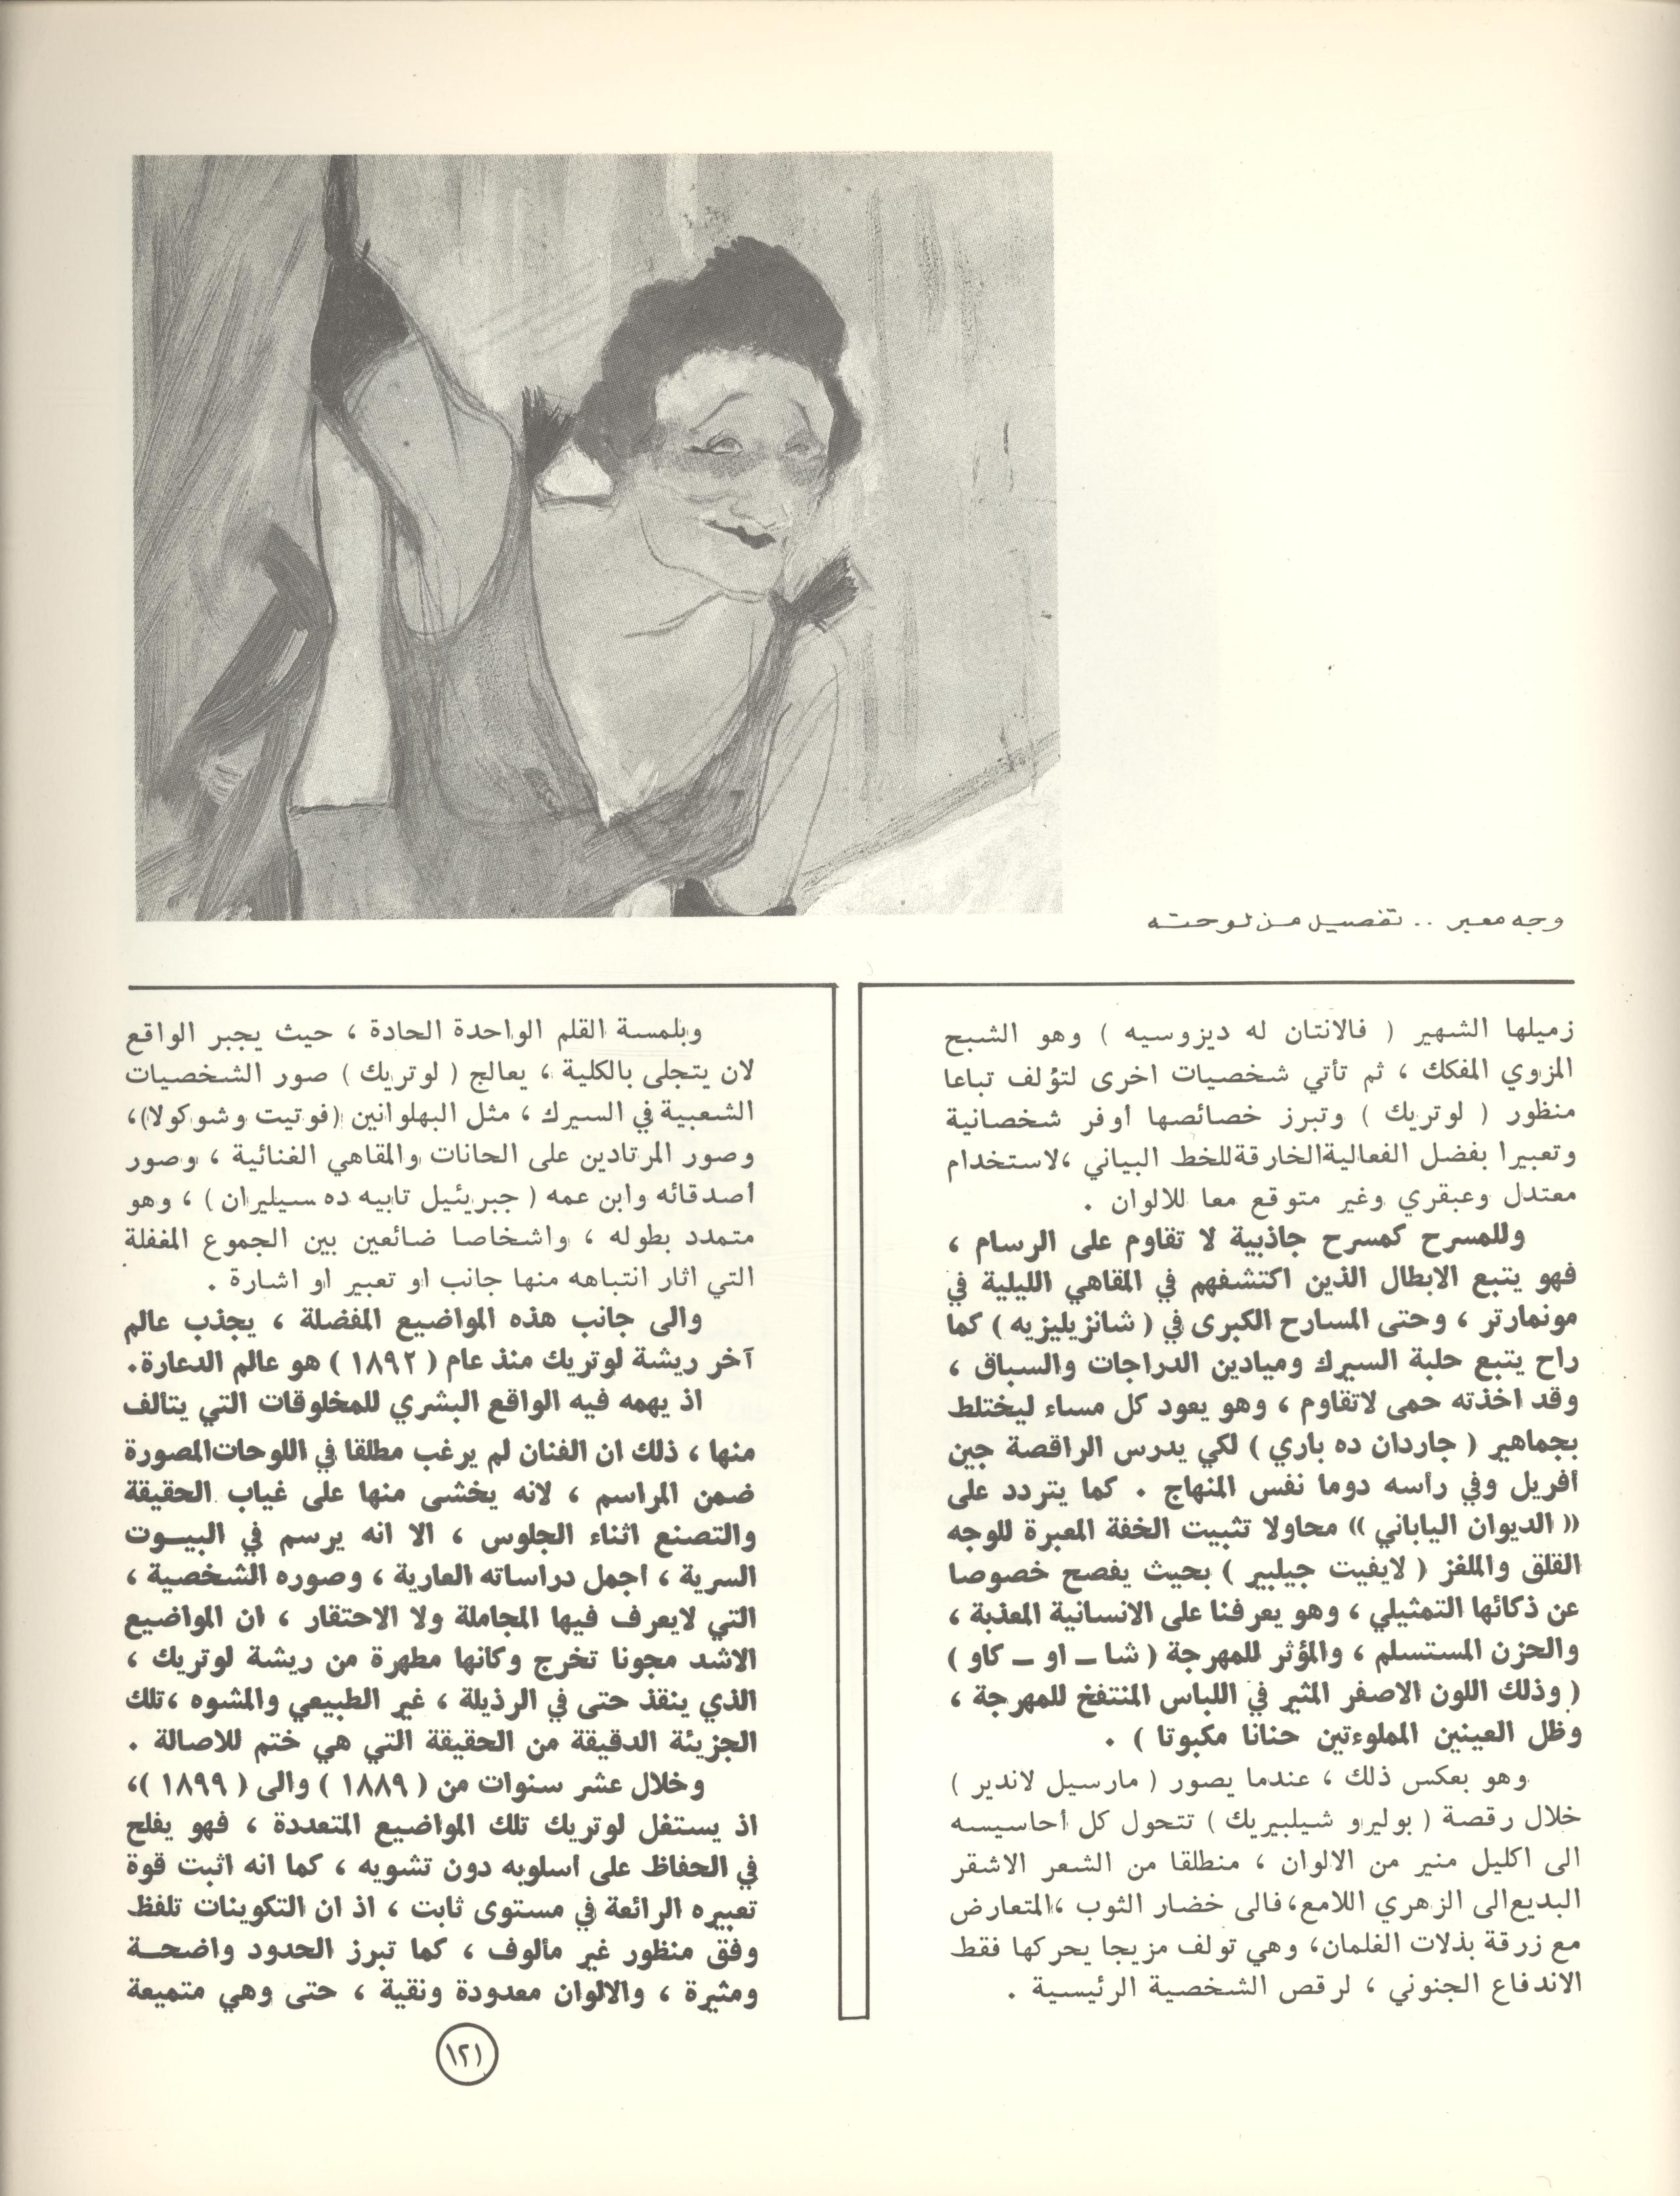 وجه معبر .. تفصيل من لوحته
زميلها الشهير ( فالانتان له ديزوسيه ) وهو الشبح
المزوي المفكك ، ثم تأتي شخصيات اخرى لتؤلف تباعا
منظور ( لوتريك ) وتبرز خصائصها أوفر شخصانية
وتعبيرا بفضل الفعالية الخارقة للخط البياني ، لاستخدام
معتدل وعبقري وغير متوقع معا للالوان .
وللمسرح كمسرح جاذبية لا تقاوم على الرسام ،
فهو يتبع الابطال الذين اكتشفهم في المقاهي الليلية في
مونمارتر ، وحتى المسارح الكبرى في ( شانزيليزيه ) كما
راح يتبع حلبة السيرك وميادين الدراجات والسباق ،
وقد اخذته حمى لاتقاوم ، وهو يعود كل مساء ليختلط
بجماهير ( جاردان ده باري ) لكي يدرس الراقصة جين
أفريل وفي رأسه دوما نفس المنهاج . كما يتردد على
« الديوان الياباني » محاولا تثبيت الخفة المعبرة للوجه
القلق والملغز ( لايفيت جيلبير ) بحيث يفصح خصوصا
عن ذكائها التمثيلي ، وهو يعرفنا على الانسانية المعذبة ،
والحزن المستسلم ، والمؤثر للمهرجة ( شا ـ او ـ كاو )
( وذلك اللون الاصفر المثير في اللباس المنتفخ للمهرجة ،
وظل العينين المملوءتين حنانا مكبوتا ) .
وهو بعكس ذلك ، عندما يصور ( مارسيل لاندير )
خلال رقصة ( بوليرو شيلبيريك ) تتحول كل أحاسيسه
الى اكليل منير من الالوان ، منطلقا من الشعر الاشقر
البديع الى الزهري اللامع ، فالى خضار الثوب ، المتعارض
مع زرقة بذلات الغلمان، وهي تولف مزيجا يحركها فقط
الاندفاع الجنوني ، لرقص الشخصية الرئيسية .
وبلمسة القلم الواحدة الحادة ، حيث يجبر الواقع
لان يتجلى بالكلية ، يعالج ( لوتريك ) صور الشخصيات
الشعبية في السيرك ، مثل البهلوانين (فوتيت وشوكولا)،
وصور المرتادين على الحانات والمقاهي الغنائية ، وصور
أصدقائه وابن عمه ( جبريئيل تابيه ده سيليران ) ، وهو
متمدد بطوله ، واشخاصا ضائعين بين الجموع المغفلة
التي اثار انتباهه منها جانب او تعبير او اشارة .
والى جانب هذه المواضيع المفضلة ، يجذب عالم
آخر ريشة لوتريك منذ عام ( ١٨٩٢ ) هو عالم الدعارة.
اذ يهمه فيه الواقع البشري للمخلوقات التي يتألف
منها ، ذلك ان الفنان لم يرغب مطلقا في اللوحات المصورة
ضمن المراسم ، لانه يخشى منها على غياب الحقيقة
والتصنع اثناء الجلوس ، الا انه يرسم في البيــوت
السرية ، اجمل دراساته العارية ، وصوره الشخصية ،
التي لايعرف فيها المجاملة ولا الاحتقار ، ان المواضيع
الاشد مجونا تخرج وكانها مطهرة من ريشة لوتريك ،
الذي ينقذ حتى في الرذيلة ، غير الطبيعي والمشوه ، تلك
الجزيئة الدقيقة من الحقيقة التي هي ختم للاصالة .
وخلال عشر سنوات من ( ١٨٨٩ ) والى ( ١٨٩٩ )،
اذ يستغل لوتريك تلك المواضيع المتعددة ، فهو يفلح
في الحفاظ على أسلوبه دون تشويه ، كما انه اثبت قوة
تعبيره الرائعة في مستوى ثابت ، اذ ان التكوينات تلفظ
وفق منظور غير مألوف ، كما تبرز الحدود واضحــة
ومثيرة ، والالوان معدودة ونقية ، حتى وهي متميعة
١٢١